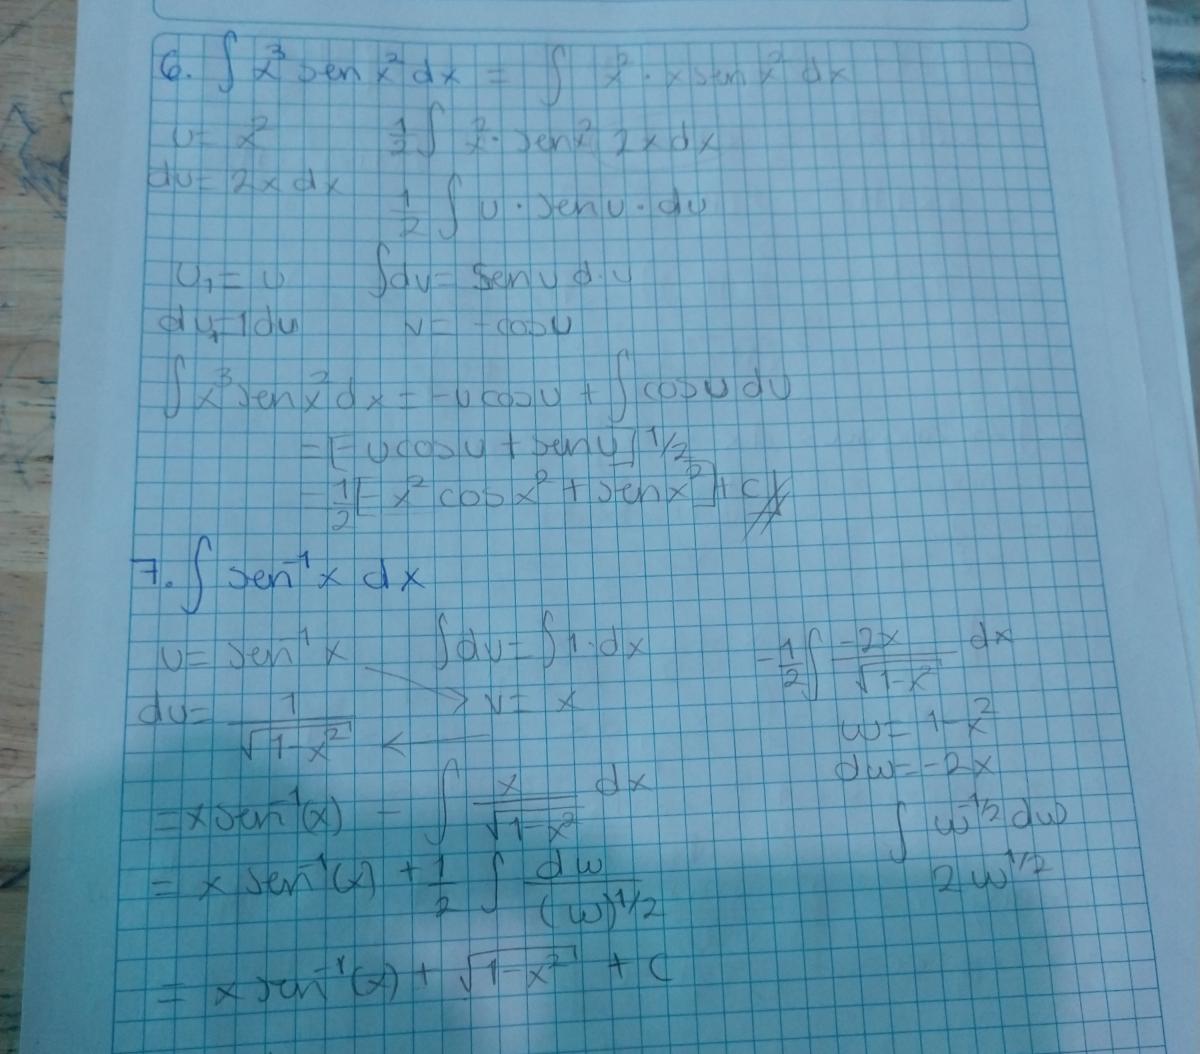 6. ∫ x³ sen x² dx = ∫ x² · x sen x² dx
u = x² 1/2 ∫ x² · sen x² 2x dx
du = 2x dx
1/2 ∫ u · sen u · du
u₁ = u ∫dv = sen u d·u
du₁ = 1 du v = -cos u
∫ x³ sen x² dx = -u cos u + ∫ cos u du
= [-u cos u + sen u] 1/2
= 1/2 [-x² cos x² + sen x²] + C
7. ∫ sen⁻¹ x dx
u = sen⁻¹ x ∫dv = ∫1·dx
du = 1/√(1-x²) v = x
= x sen⁻¹(x) - ∫ x/√(1-x²) dx
= x sen⁻¹(x) + 1/2 ∫ dw/(w)^1/2
= x sen⁻¹(x) + √(1-x²) + C
-1/2 ∫ -2x/√(1-x²) dx
w = 1-x²
dw = -2x
∫ w^-1/2 dw
2w^1/2